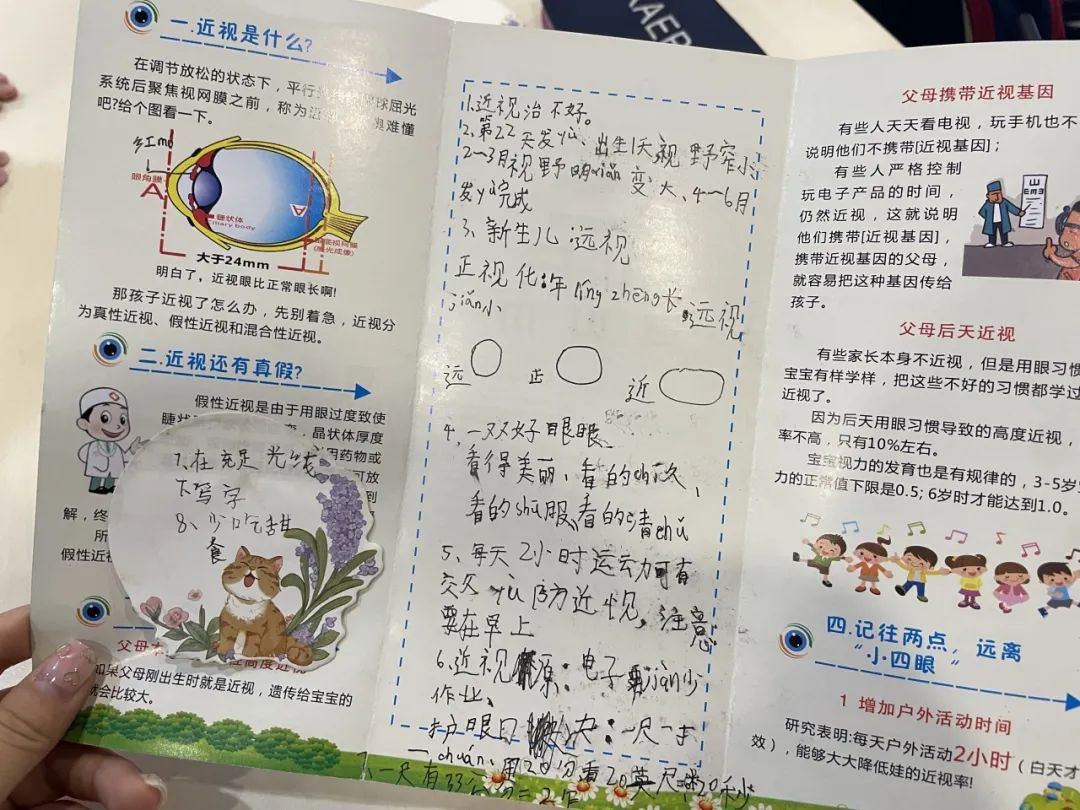 KAEP
一.近视是什么?
在调节放松的状态下，平行
球屈光
系统后聚焦视网膜之前，称为近
奥难懂
吧?给个图看一下。
红mo
眼角膜
A
A
睫状体
Ciliary body
视网膜
(感光成像)
大于24mm
明白了，近视眼比正常眼长啊!
那孩子近视了怎么办，先别着急，近视分
为真性近视、假性近视和混合性近视。
二.近视还有真假?
假性近视是由于用眼过度致使
睫状
晶状体厚度
用药物或
可放
到
解，终
所
假性近
7.在充足光线
下写字
8、少吃甜
食
父母
高度近视
如果父母刚出生时就是近视，遗传给宝宝的
就会比较大。
1.近视治不好。
2、第22天发yù、出生1天视野窄小、
2-3月视野明xiǎn变大、4-6月
发yù完成
3、新生儿远视
正视化:年líng zhēng长远视
jiǎn小
远 正 近
4、一双好眼眼
看得美丽、看的chí久、
看的shū服、看的清chǔ
5、每天2小时运动可有
效 yù防近视。注意
要在早上
6、近视原:电子 jiǎn少
作业、
护眼口决:一尺一寸
一chuán、用20分看20英尺20秒
1、一尺有33公分
父母携带近视基因
有些人天天看电视，玩手机也不
说明他们不携带[近视基因]；
有些人严格控制
玩电子产品的时间，
仍然近视，这就说明
他们携带[近视基因]，
携带近视基因的父母，
就容易把这种基因传给
孩子。
山
EmB
父母后天近视
有些家长本身不近视，但是用眼习惯
宝宝有样学样，把这些不好的习惯都学过
近视了。
因为后天用眼习惯导致的高度近视，
率不高，只有10%左右。
宝宝视力的发育也是有规律的，3-5岁
力的正常值下限是0.5; 6岁时才能达到1.0。
四.记住两点，远离
“小四眼”
1 增加户外活动时间
研究表明:每天户外活动2小时（白天才
效），能够大大降低娃的近视率!